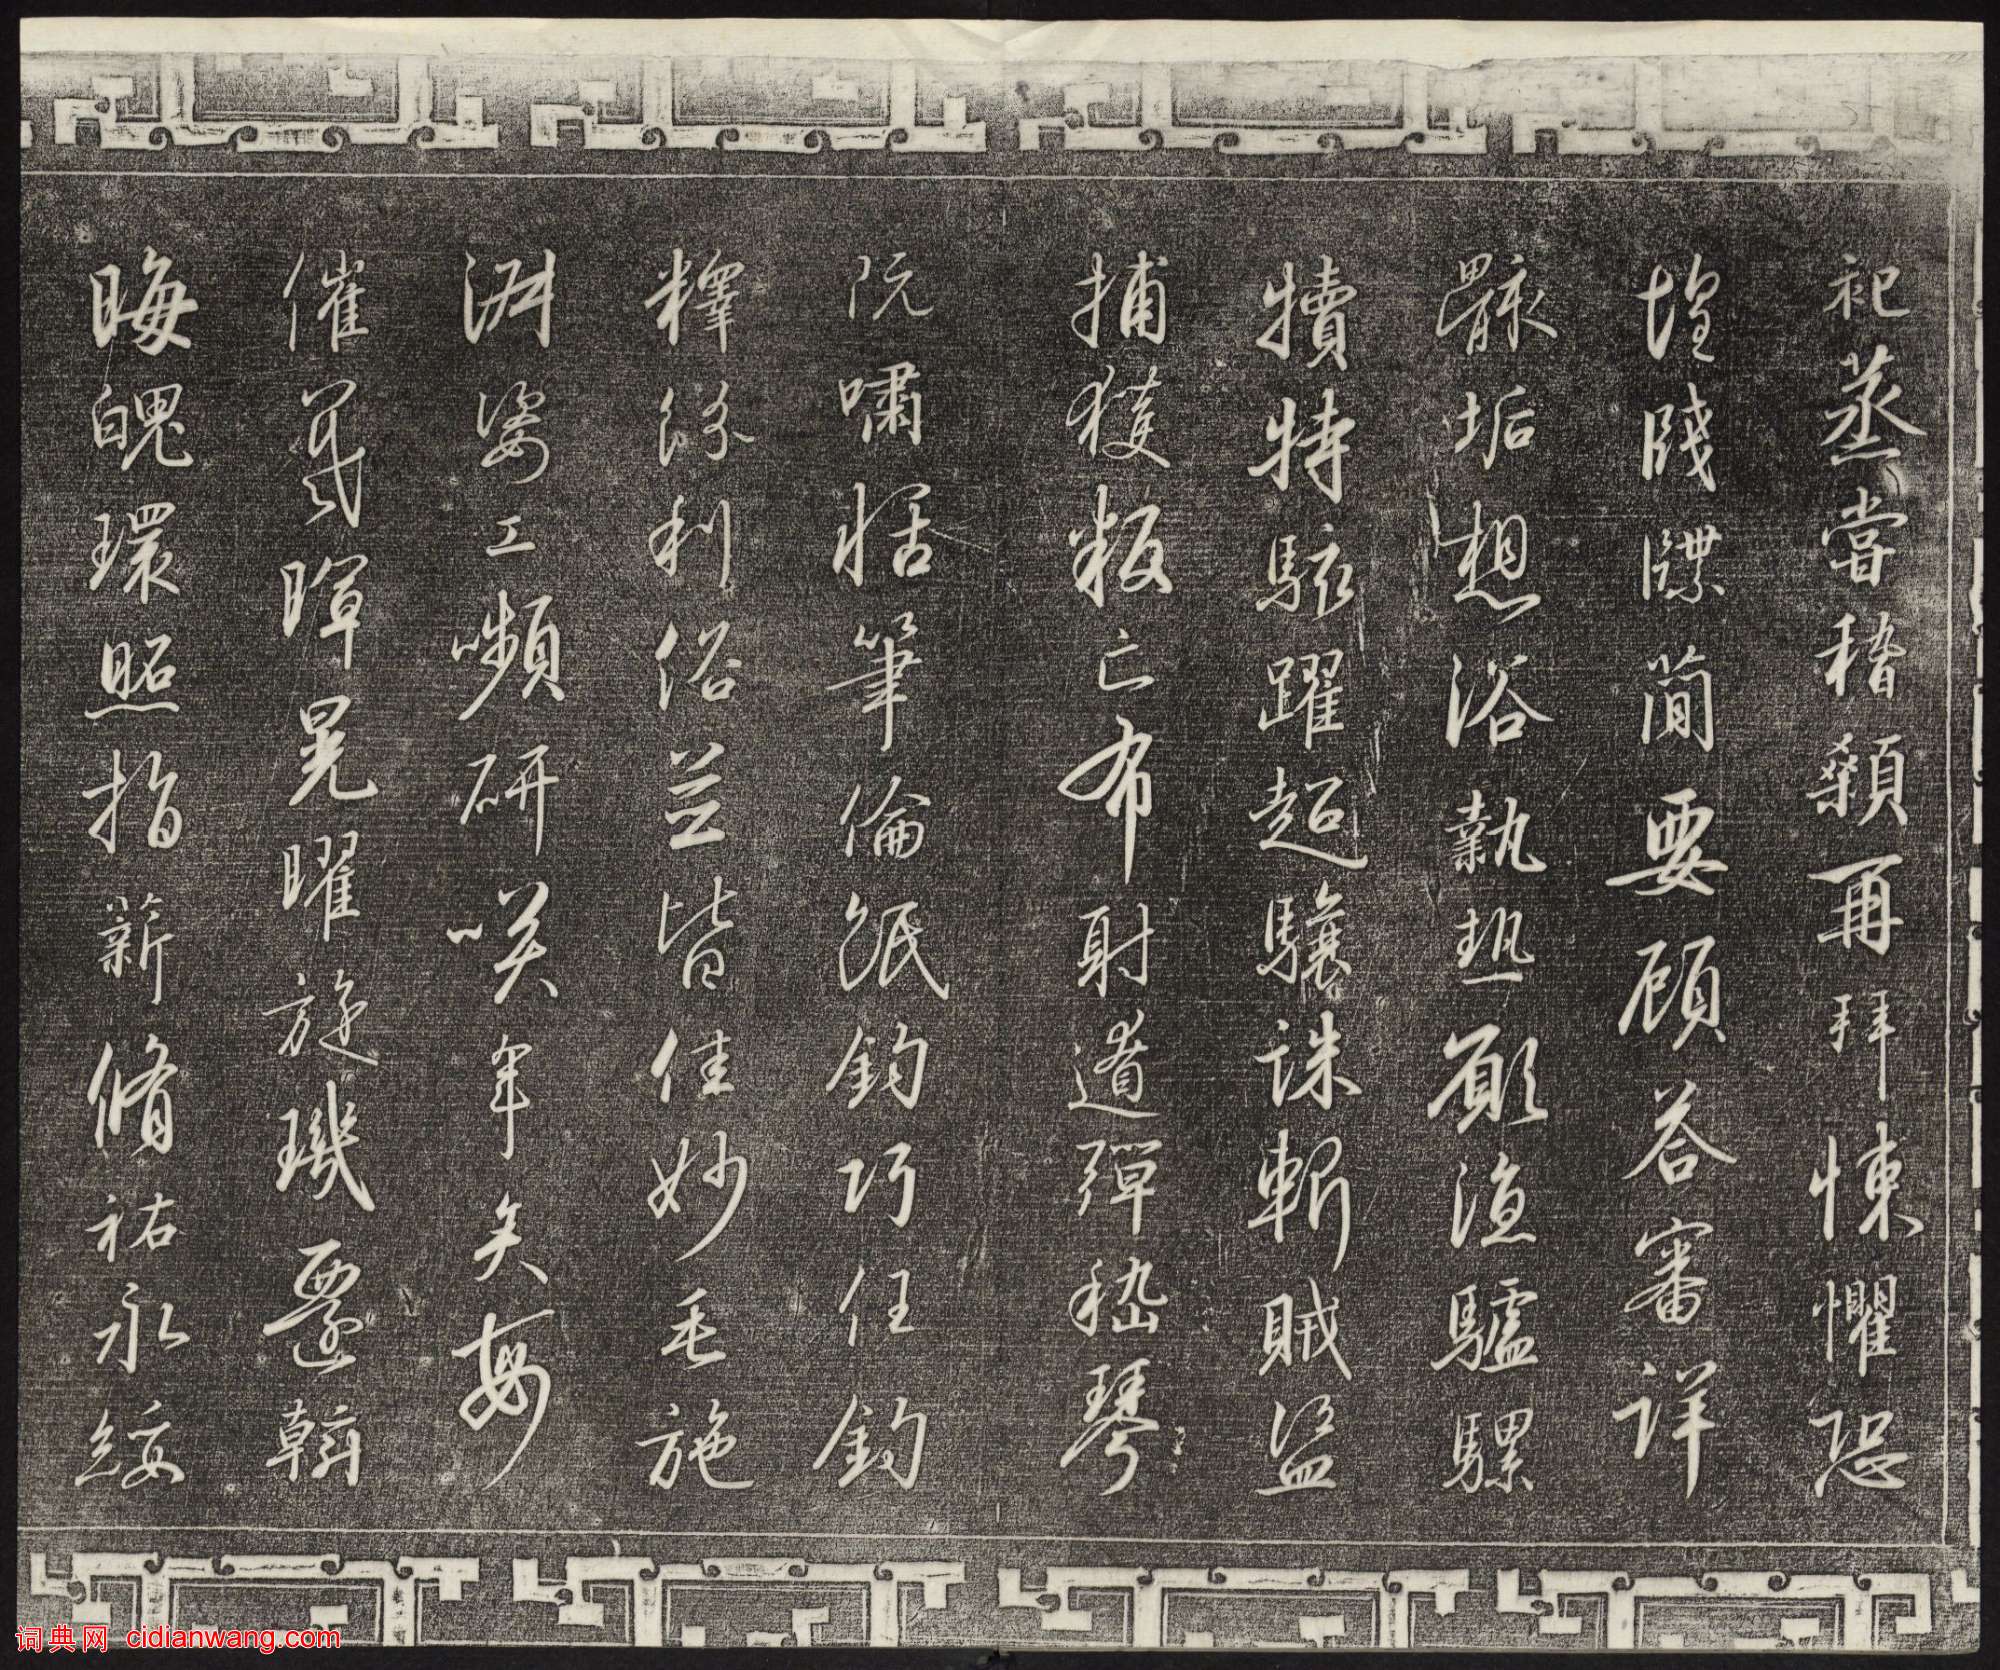 祀蒸嘗稽顙再拜悚懼恐
惶牋牒簡要顧答審詳
骸垢想浴執熱願涼驢騾
犢特駭躍超驤誅斬賊盜
捕獲叛亡布射遼彈嵇琴
阮嘯恬筆倫紙鈞巧任鈞
釋紛利俗並皆佳妙毛施
淑姿工嚬研咲年矢每
催羲暉晃曜旋璣斡
晦魄環照指薪脩祐永綏
词典网 cidianwang.com